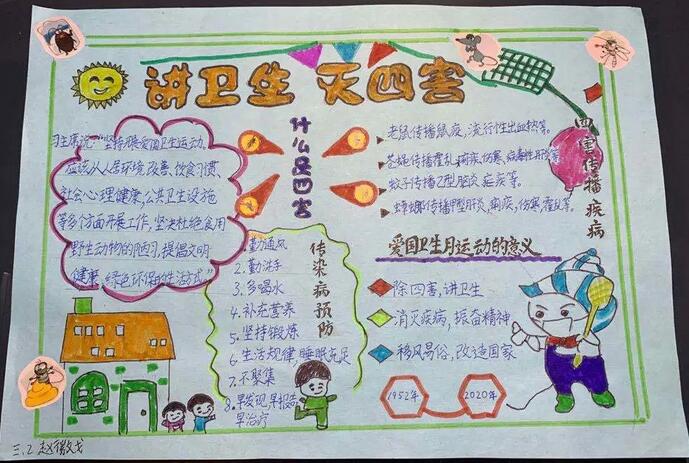 讲卫生 灭四害
习主席说："坚持开展爱国卫生运动,
应该从人居环境改善、饮食习惯、
社会心理健康,公共卫生设施
等多个方面开展工作,坚决杜绝食用
野生动物的陋习,提倡文明
健康、绿色环保的生活方式。"
什么是四害
老鼠传播鼠疫,流行性出血热等。
苍蝇传播霍乱、痢疾、伤寒、病毒性肝炎等。
蚊子传播乙型脑炎 疟疾等。
蟑螂传播甲型肝炎,痢疾,伤寒,霍乱等。
四害传播疾病
传染病预防
1.勤通风
2.勤洗手
3.多喝水
4.补充营养
5.坚持锻炼
6.生活规律,睡眠充足
7.不聚集
8.早发现,早报告
早治疗
爱国卫生月运动的意义
除四害,讲卫生
消灭疾病,振奋精神
移风易俗,改造国家
1952年
2020年
三.2